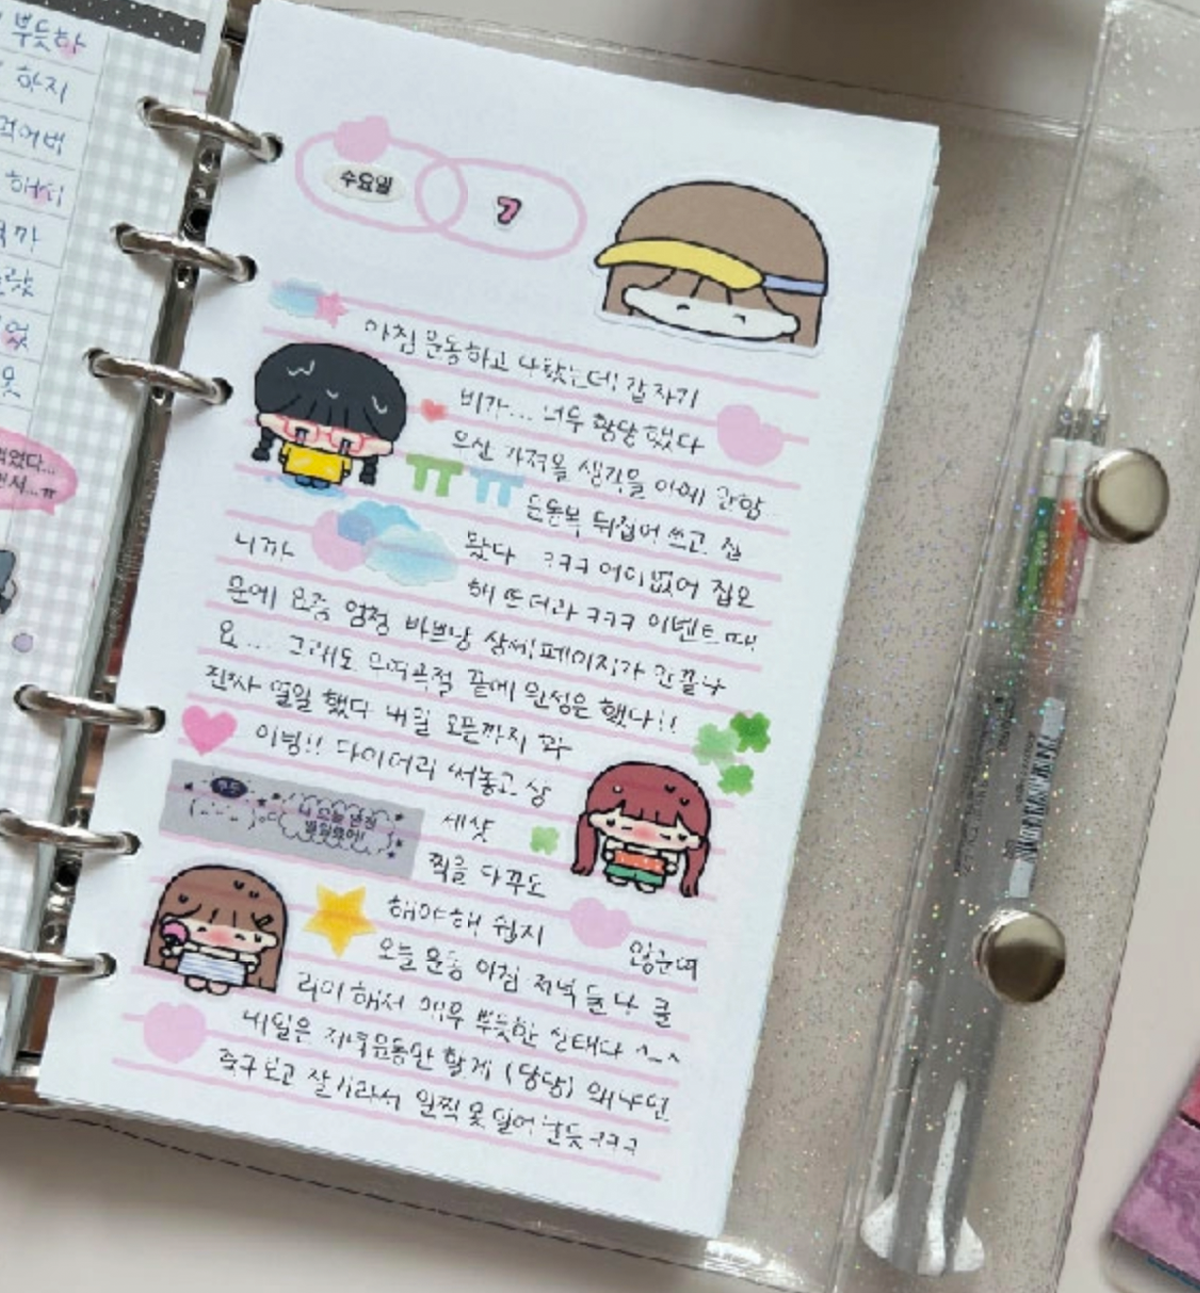 뿌듯하
하지
먹어버
수요일
7
아침 운동하고 나왔는데! 갑자기
비가... 너무 황당했다
우산 가져올 생각을 아예 안함
ㅠㅠ 운동복 뒤집어 쓰고 집
니까 왔다 ㅋㅋㅋ 어이없어 집오
해 뜨더라 ㅋㅋㅋ 이벤트 때
문에 요즘 엄청 바쁘낭 상세페이지가 안끝나
요... 그래도 우여곡절 끝에 완성은 했다!!
진짜 열일 했다 내일 오픈까지 파
이팅!! 다이어리 써놓고 상
세샷
찍을 다꾸도
나 오늘 완전
열일했어!
해야해 쉽지
않군여
오늘 운동 아침 저녁 둘 다 클
리어 해서 매우 뿌듯한 상태다 ^_^
내일은 저녁운동만 할게 (당당) 왜냐면
축구보고 잘거라서 일찍 못일어날듯 ㅋㅋㅋ